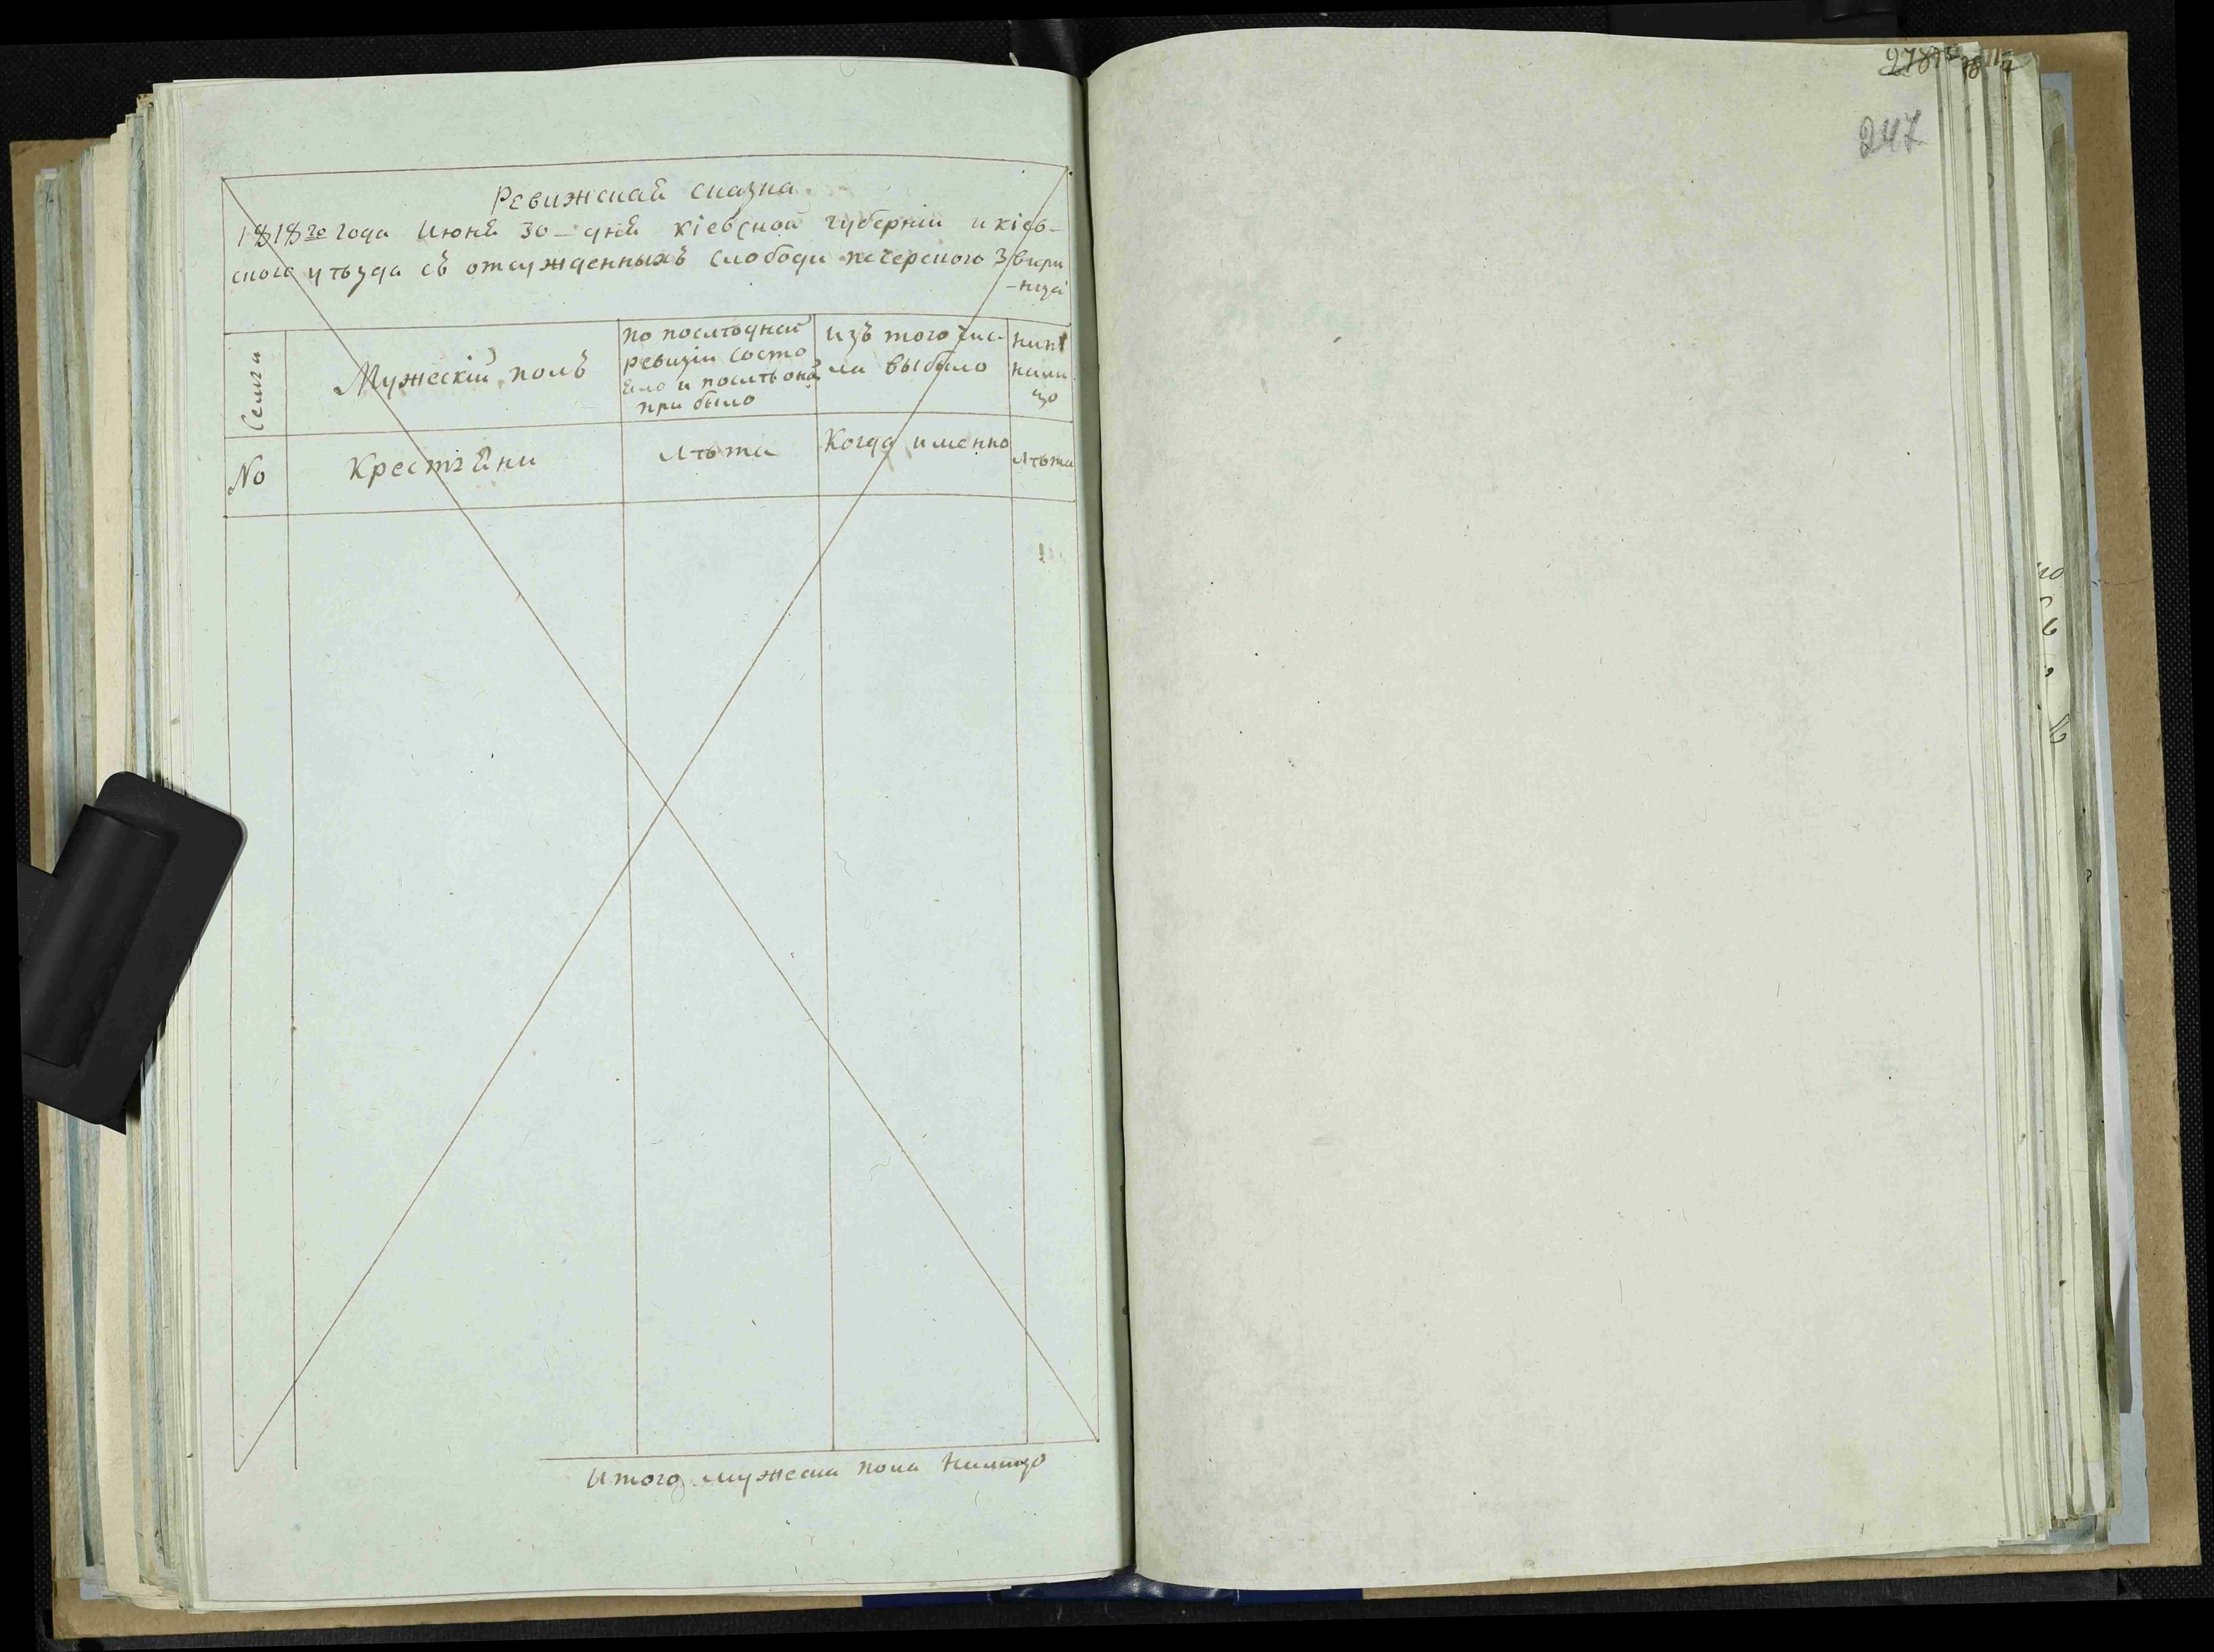 Ревижская сказка
1818го года Июня 30 дня кіевской губерніи и кіев-
ского уѣзда съ отсужденныхъ слободи печерского Звѣри-
-нца
Семьи
Мужескій полъ
по послѣдней
ревизіи состо
яло и послѣ оной
прибыло
изъ того чис-
ла выбыло
нинѣ
нали
цо
No
Крестьяни
лѣта
Когда именно
лѣта
Итого мужеска пола налицо
278
247